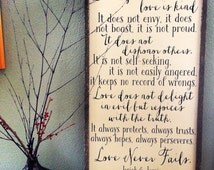 love is kind
It does not envy, it does
not boast, it is not proud.
It does not
dishonor others.
It is not self-seeking,
it is not easily angered,
it keeps no record of wrongs.
Love does not delight
in evil but rejoices
with the truth.
It always protects, always trusts,
always hopes, always perseveres.
Love Never Fails.